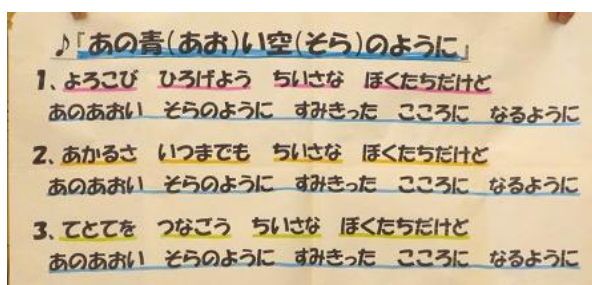 ♪『あの青(あお)い空(そら)のように』
1、よろこび ひろげよう ちいさな ぼくたちだけど
あのあおい そらのように すみきった こころに なるように
2、あかるさ いつまでも ちいさな ぼくたちだけど
あのあおい そらのように すみきった こころに なるように
3、てとてを つなごう ちいさな ぼくたちだけど
あのあおい そらのように すみきった こころに なるように